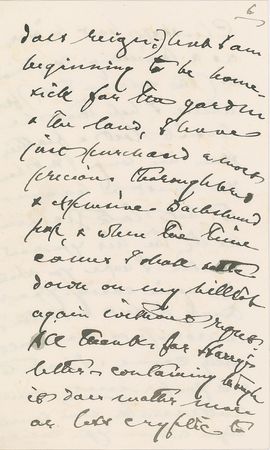 6
does reign:) but I am
beginning to be home-
sick for the garden
& the land, I have
just purchased a most
precious thoroughbred
& expensive Dachshund
pup, & when the time
comes I shall settle
down on my hilltop
again without regrets
All thanks for Harry's
letter - containing though
is does matter more
or less cryptic to